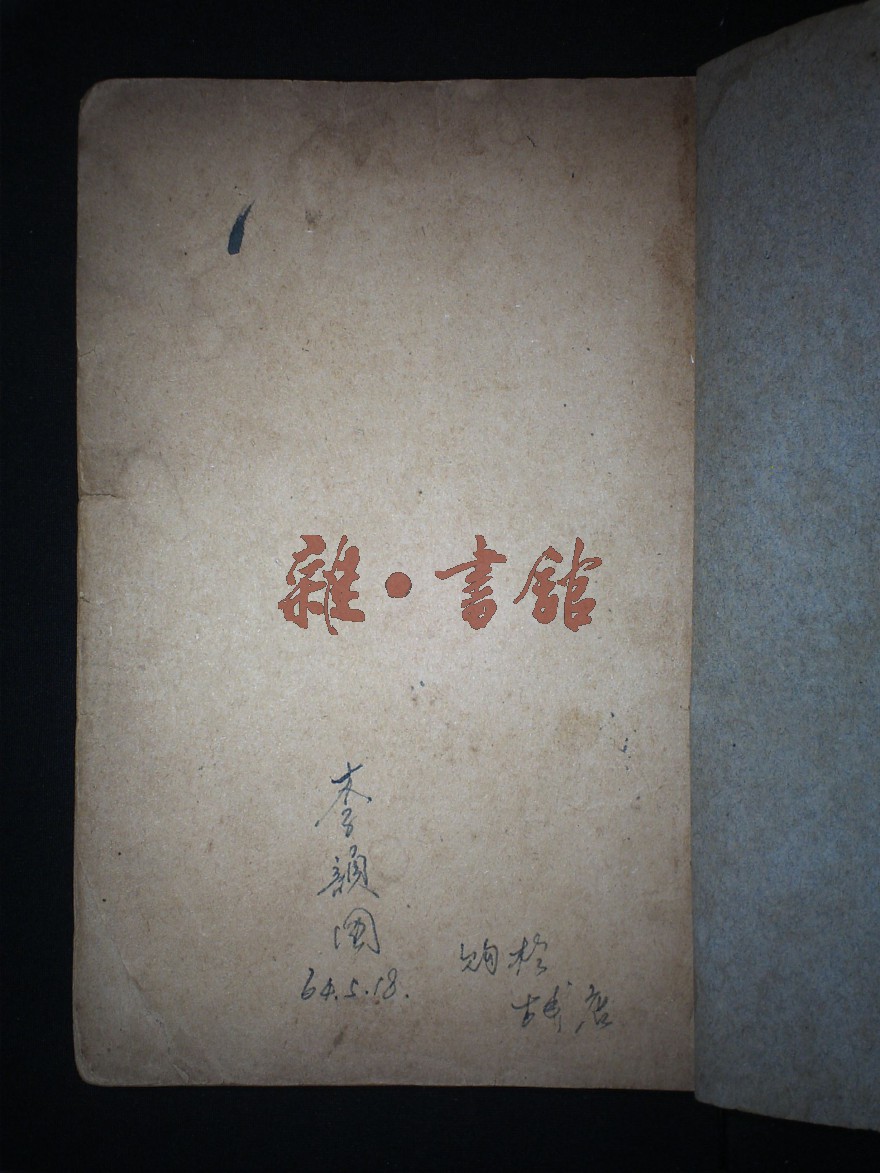 雜·書館
李韻閣
64.5.18.
购於
古书店